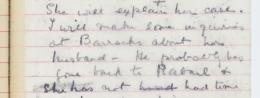 She will explain her case.
I will make some inquiries
at Barracks about her
husband - He probably has
gone back to Rabaul &
she has not had time